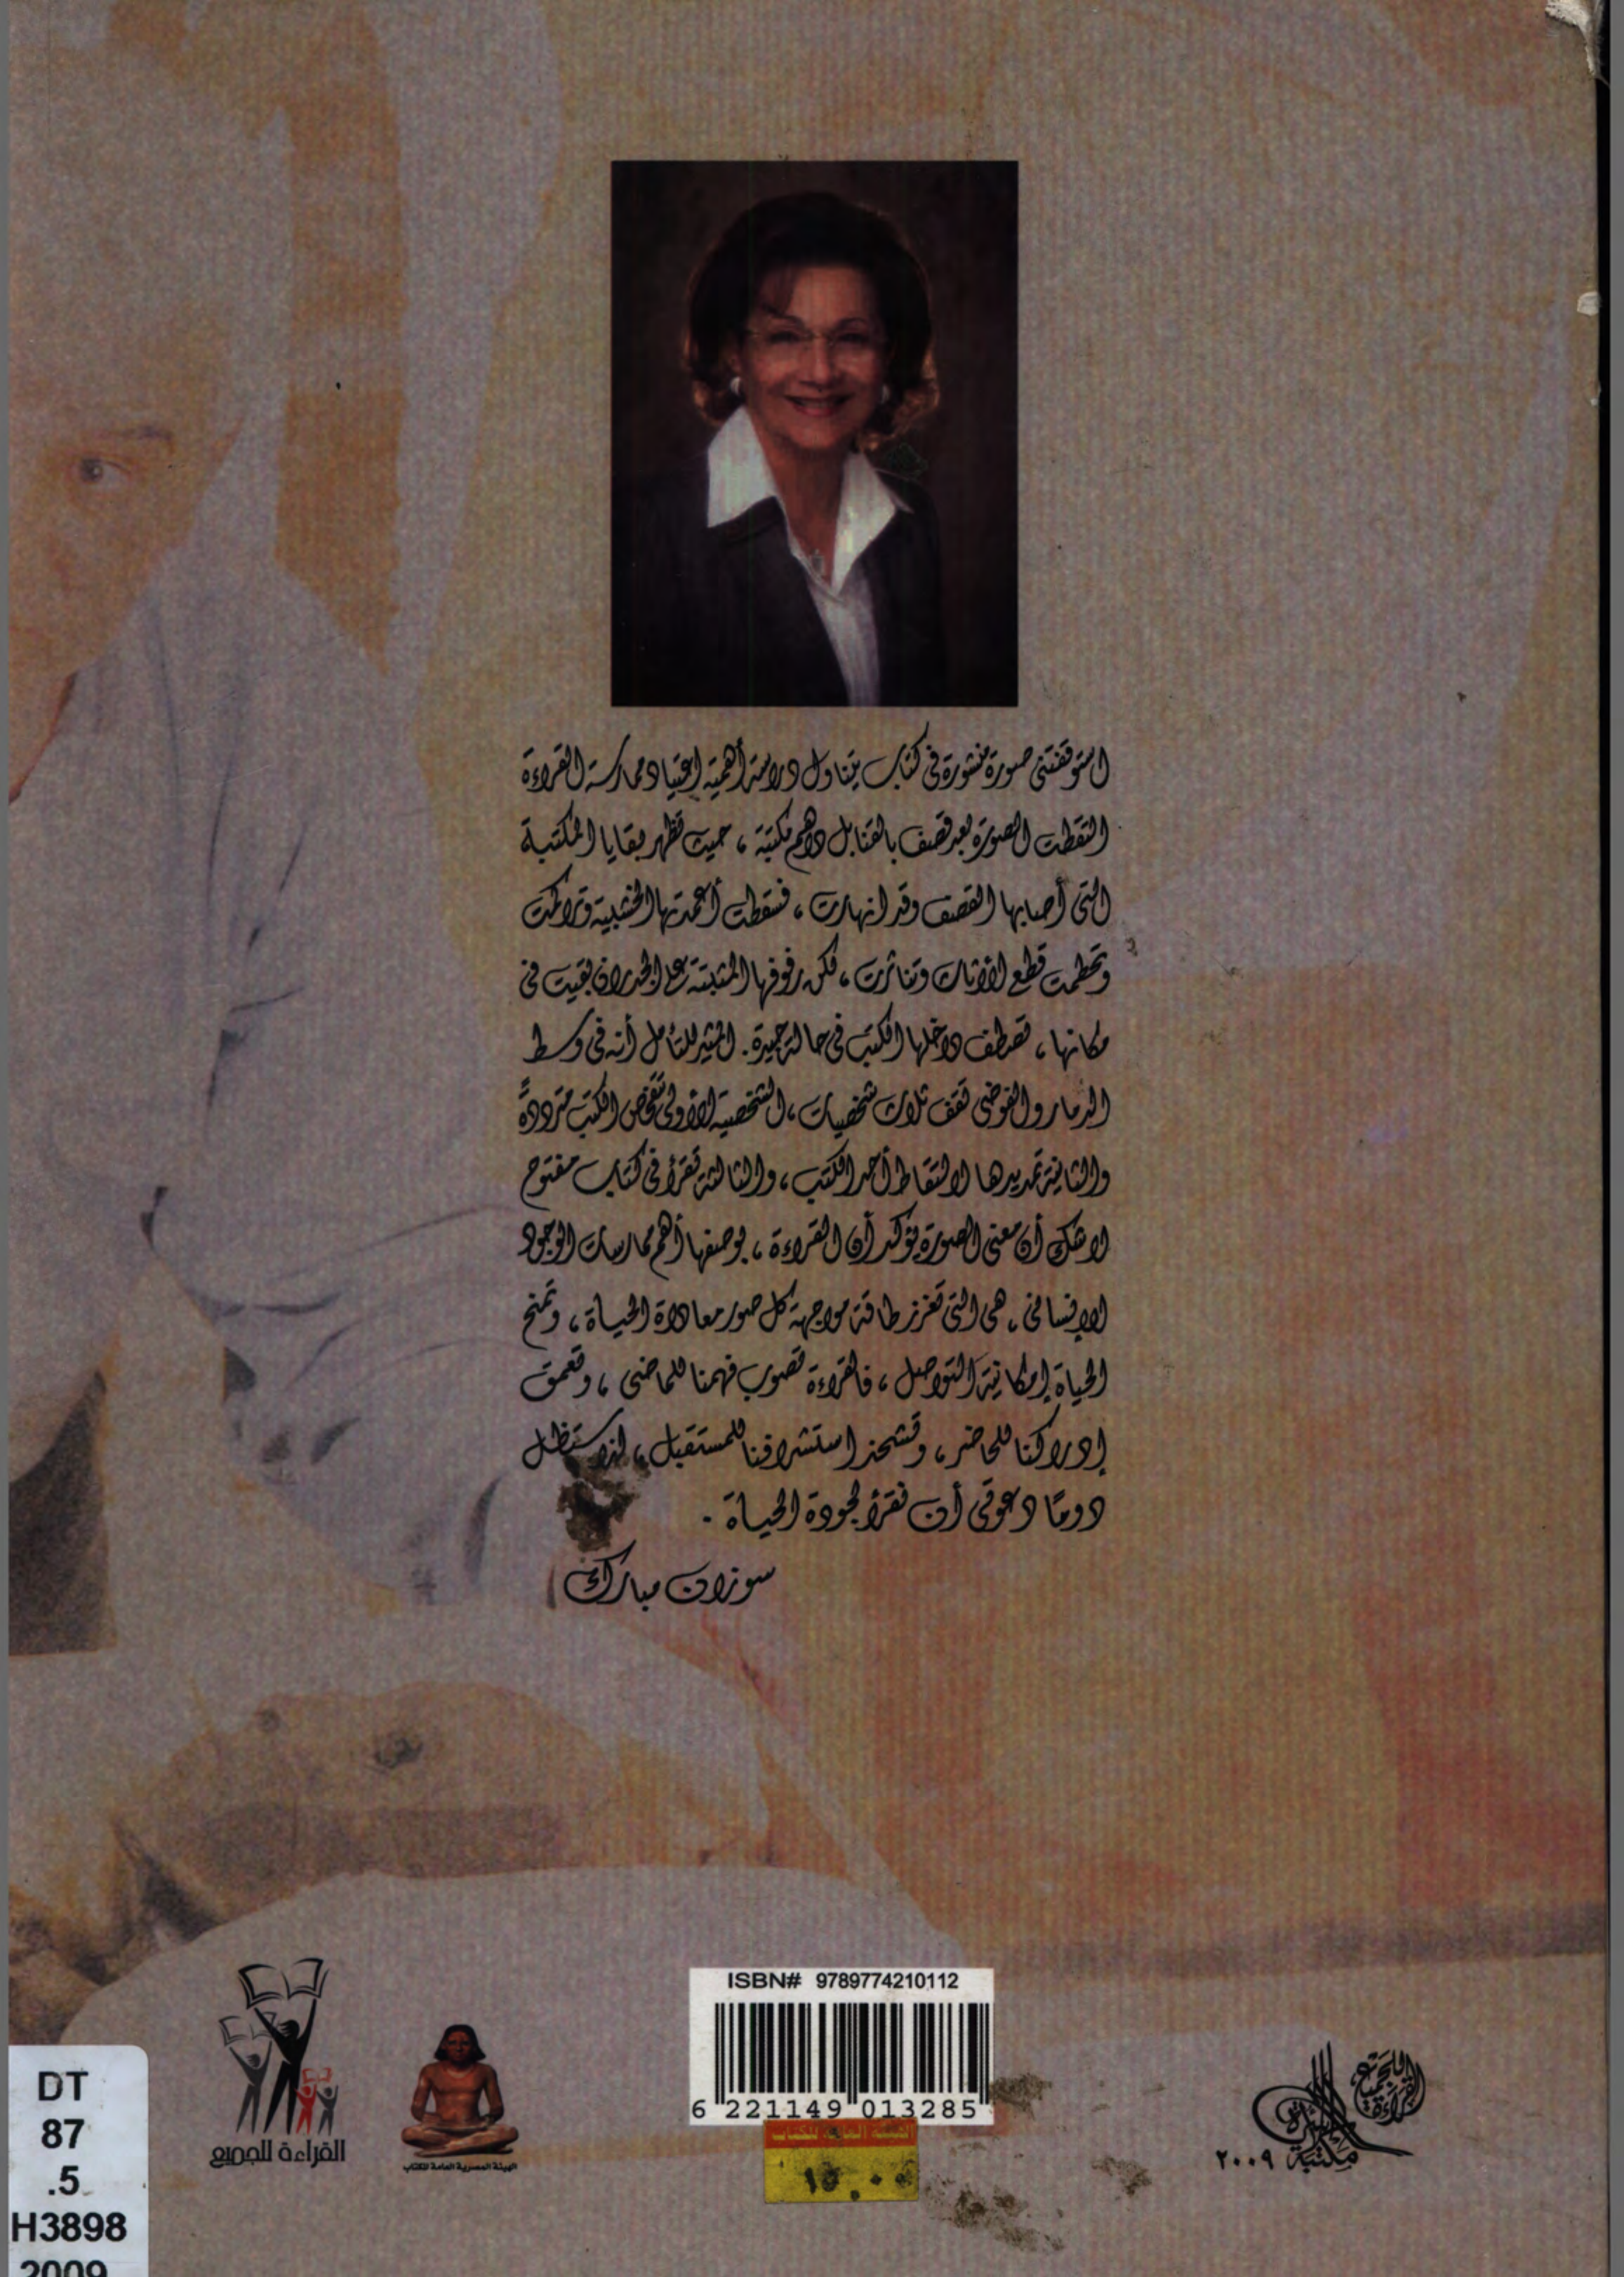 استوقفتنى صورة منشورة فى كتاب يتناول دراسة أهمية اعتياد ممارسة القراءة
التقطت الصورة بعد قصف بالقنابل داهم مكتبة ، حيث تظهر بقايا المكتبة
التى أصابها القصف وقد انهارت ، فسقطت أعمدتها الخشبية وتراكمت
وتحطمت قطع الأثاث وتناثرت ، لكن رفوفها المثبتة على الجدران بقيت فى
مكانها ، تصطف داخلها الكتب فى حالة جيدة . المثير للتأمل أنه فى وسط
الدمار والفوضى تقف ثلاث شخصيات ، الشخصية الأولى تتفحص الكتب مترددةً
والثانية تمد يدها لالتقاط أحد الكتب ، والثالثة تقرأ فى كتاب مفتوح
لا شك أن معنى الصورة يؤكد أن القراءة ، بوصفها أهم ممارسات الوجود
الإنسانى ، هى التى تعزز طاقة مواجهة كل صور معاداة الحياة ، وتمنح
الحياة إمكانية التواصل ، فالقراءة تصوب فهمنا للماضى ، وتعمق
إدراكنا للحاضر ، وتشحذ استشرافنا للمستقبل ، لذا ستظل
دومًا دعوتى أن نقرأ لجودة الحياة .
سوزان مبارك
ISBN# 9789774210112
6 221149 013285
١٥.٠٠
القراءة للجميع
الهيئة المصرية العامة للكتاب
القراءة للجميع
مكتبة الأسرة
٢٠٠٩
DT
87
.5
H3898
2009